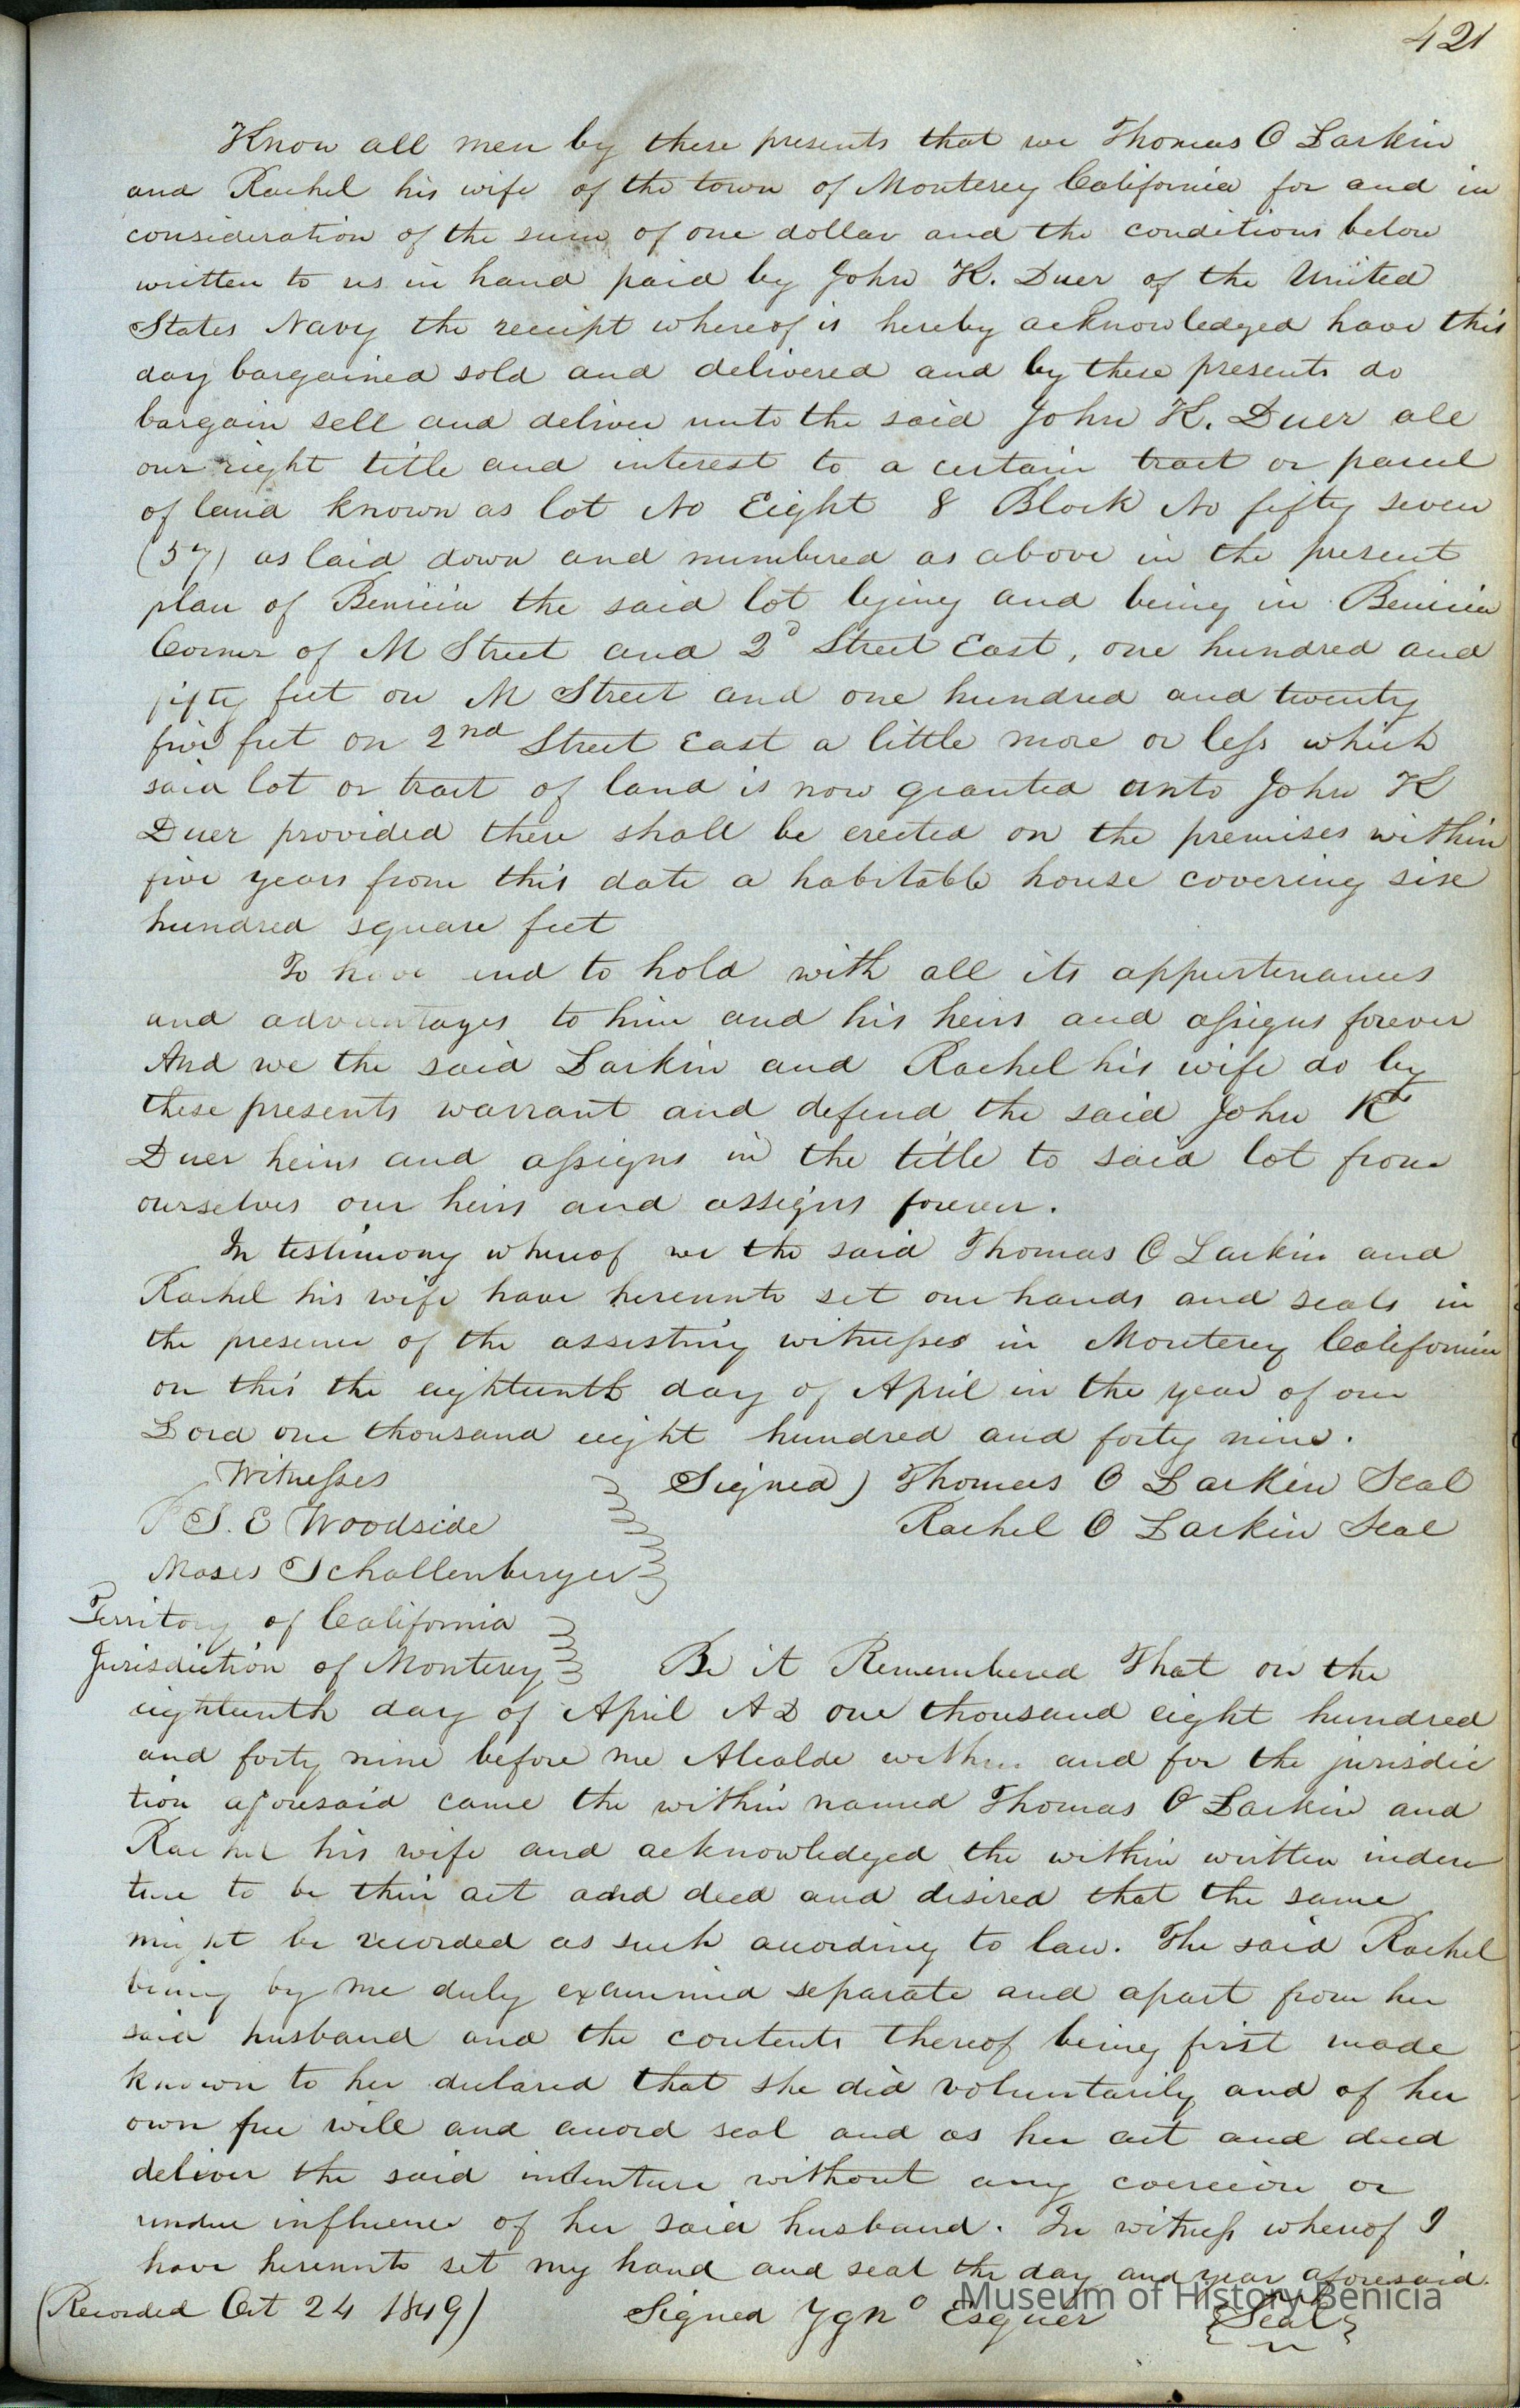 421
Know all men by these presents that we Thomas O Larkin
and Rachel his wife of the town of Monterey California for and in
consideration of the sum of one dollar and the conditions below
written to us in hand paid by John K. Duer of the United
States Navy the receipt whereof is hereby acknowledged have this
day bargained sold and delivered and by these presents do
bargain sell and deliver unto the said John K. Duer all
our right title and interest to a certain tract or parcel
of land known as lot No Eight 8 Block No fifty seven
(57) as laid down and numbered as above in the present
plan of Benicia the said lot lying and being in Benicia
Corner of M Street and 2d Street East, one hundred and
fifty feet on M Street and one hundred and twenty
five feet on 2nd Street East a little more or less which
said lot or tract of land is now granted unto John K
Duer provided there shall be erected on the premises within
five years from this date a habitable house covering six
hundred square feet
To have and to hold with all its appurtenances
and advantages to him and his heirs and assigns forever
And we the said Larkin and Rachel his wife do by
these presents warrant and defend the said John K
Duer heirs and assigns in the title to said lot from
ourselves our heirs and assigns forever.
In testimony whereof we the said Thomas O Larkin and
Rachel his wife have hereunto set our hands and seals in
the presence of the assisting witnesses in Monterey California
on this the eighteenth day of April in the year of our
Lord one thousand eight hundred and forty nine.
Witnesses Signed) Thomas O Larkin Seal
P S. E Woodside Rachel O Larkin Seal
Moses Schallenberger
Territory of California
Jurisdiction of Monterey Be it Remembered That on the
eighteenth day of April AD one thousand eight hundred
and forty nine before me Alcalde within and for the jurisdic
tion aforesaid came the within named Thomas O Larkin and
Rachel his wife and acknowledged the within written inden
ture to be their act and deed and desired that the same
might be recorded as such acording to law. The said Rachel
being by me duly examined separate and apart from her
said husband and the contents thereof being first made
known to her declared that she did voluntarily and of her
own free will and accord seal and as her act and deed
deliver the said indenture without any coercion or
undue influence of her said husband. In witness whereof I
have hereunto set my hand and seal the day and year aforesaid.
(Recorded Oct 24 1849) Signed Ygno Esquer Seal
Museum of History Benicia